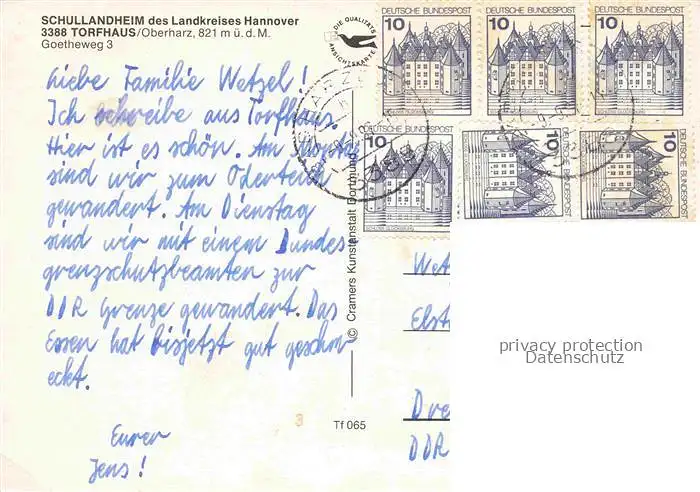 SCHULLANDHEIM des Landkreises Hannover
3388 TORFHAUS/Oberharz, 821 m ü. d. M.
Goetheweg 3
DIE QUALITÄTS
ANSICHTSKARTE
Liebe Familie Wetzel!
Ich schreibe aus Torfhaus.
Hier ist es schön. Am Montag
sind wir zum Oderteich
gewandert. Am Dienstag
sind wir mit einem Bundes
grenzschutzbeamten zur
DDR Grenze gewandert. Das
Essen hat bisjetzt gut geschm-
eckt.
Eurer
Jens!
© Cramers Kunstanstalt Dortmund
3
Tf 065
DEUTSCHE BUNDESPOST
10
SCHLOSS GLÜCKSBURG
DEUTSCHE BUNDESPOST
10
DEUTSCHE BUNDESPOST
10
DEUTSCHE BUNDESPOST
10
SCHLOSS GLÜCKSBURG
DEUTSCHE BUNDESPOST
10
DEUTSCHE BUNDESPOST
10
3388
Wet
Elst
Dre
DDR
privacy protection
Datenschutz